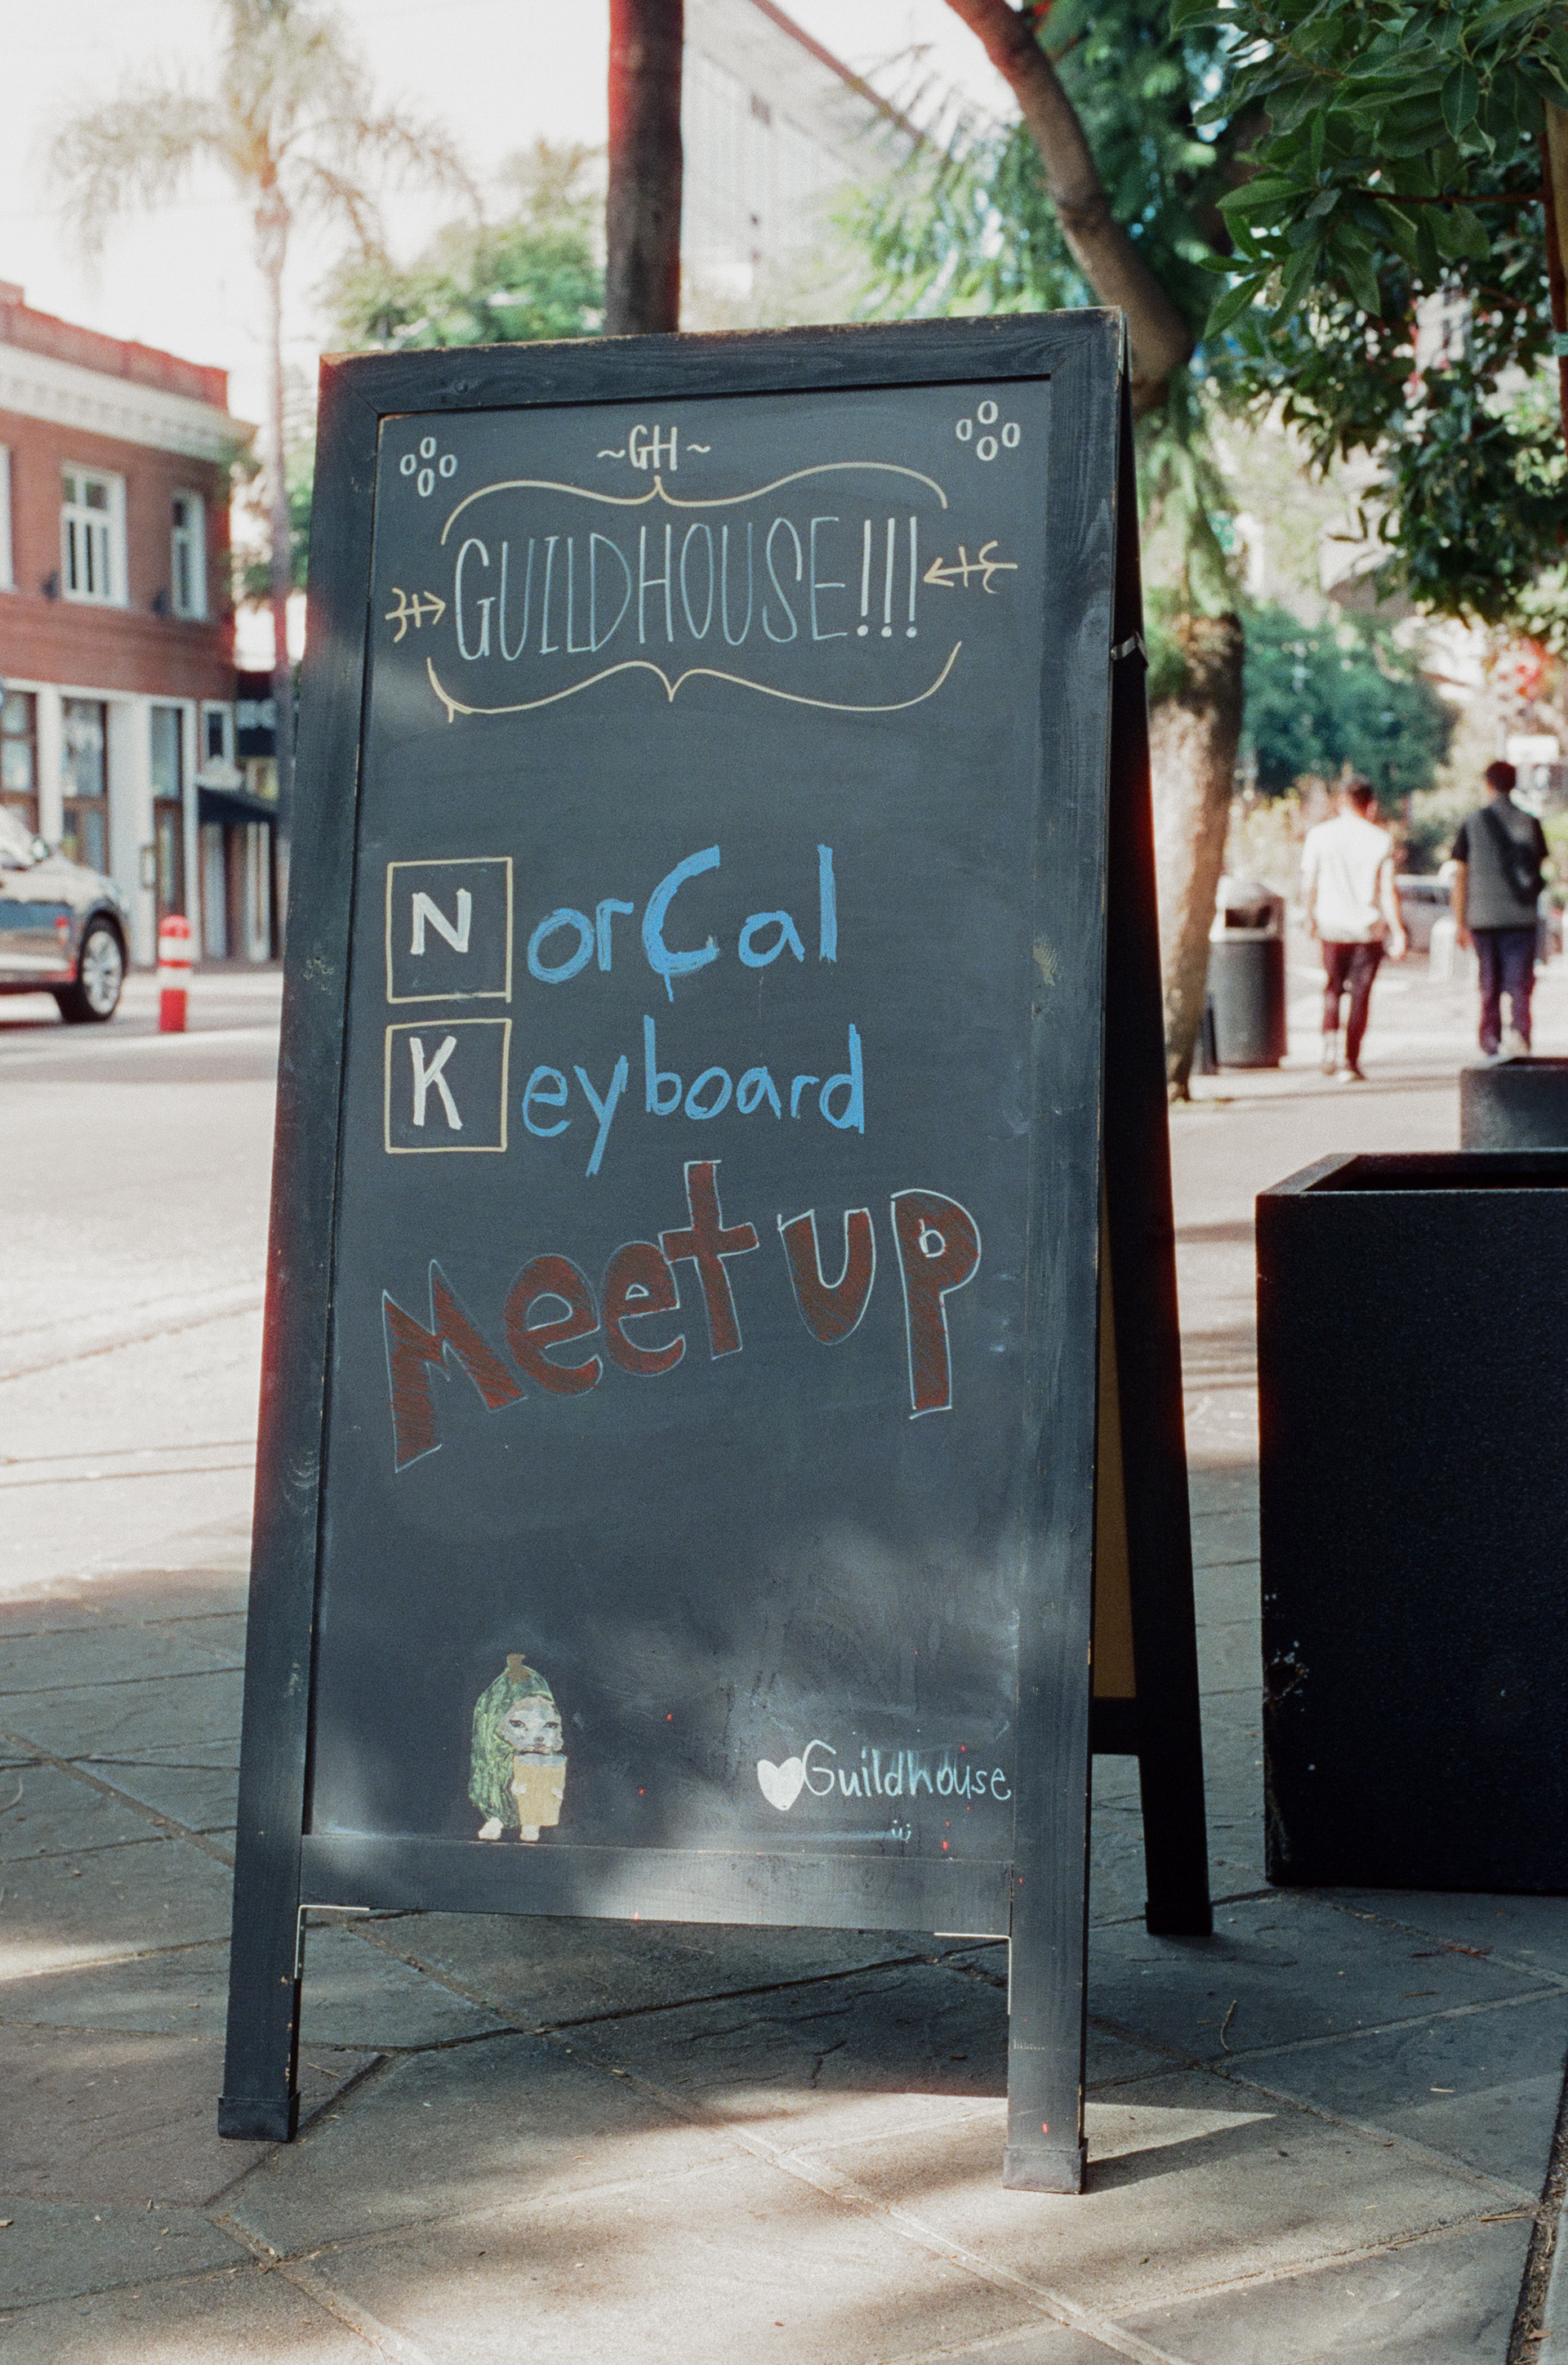 ~GH~
GUILDHOUSE!!!
NorCal
Keyboard
Meetup
Guildhouse